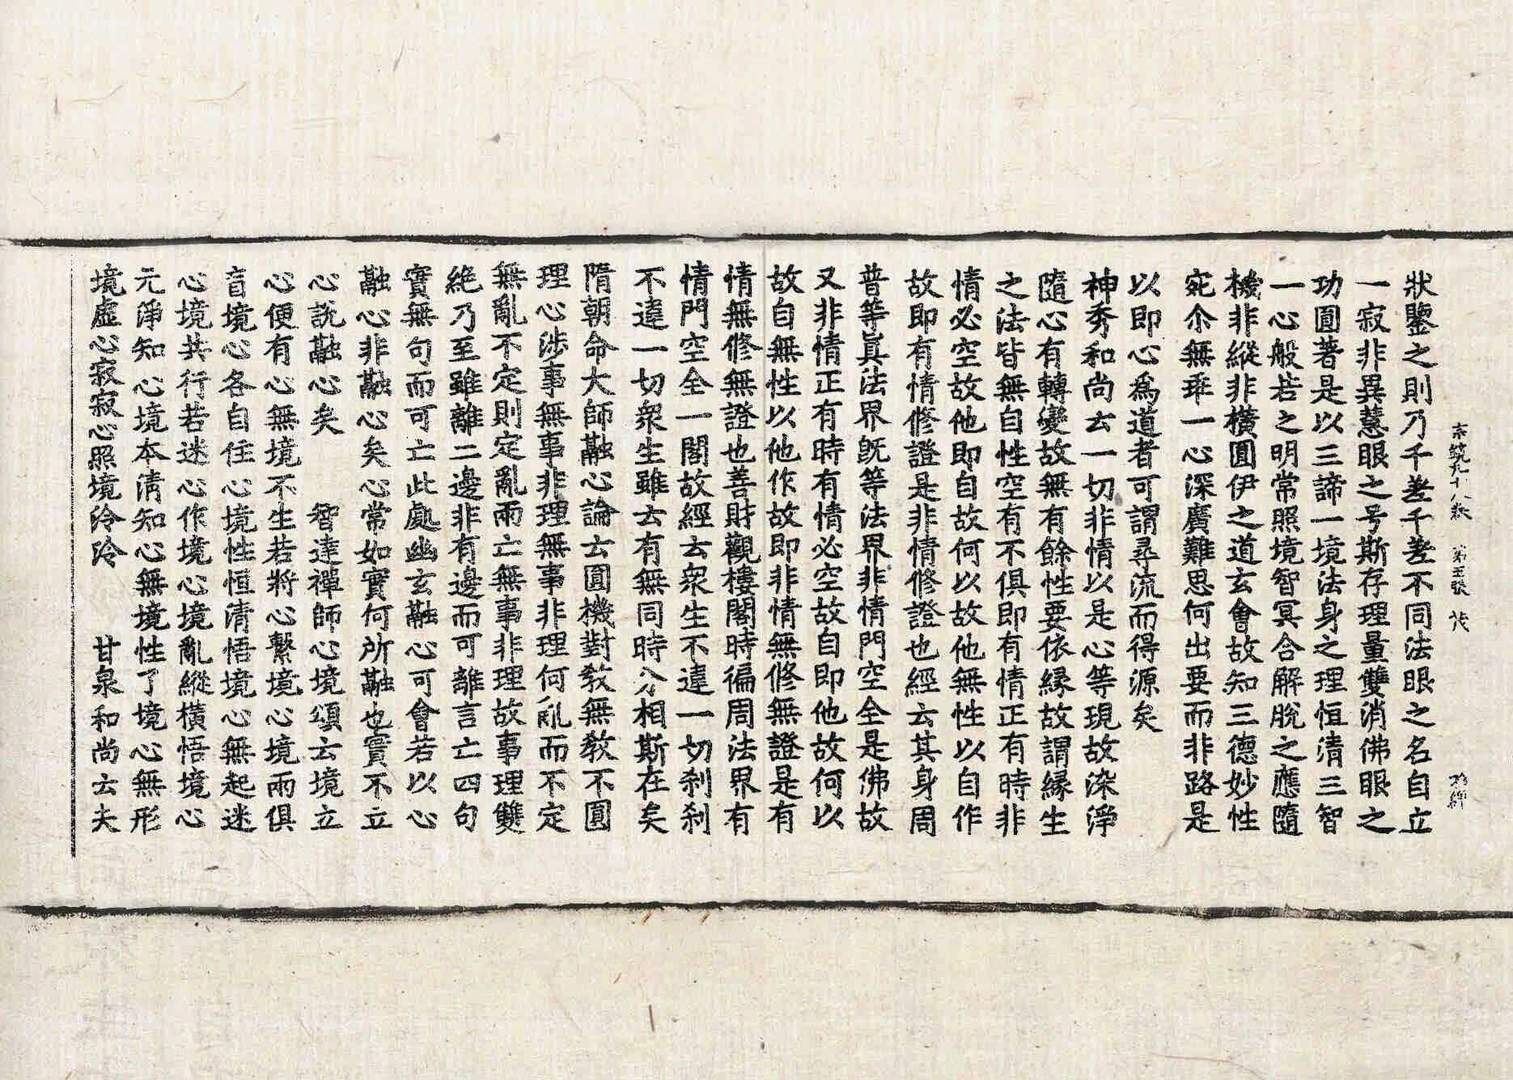 宗鏡九十八卷 第五張 茂
狀鑒之則乃千差千差不同法眼之名自立
一寂非異慧眼之号斯存理量雙消佛眼之
功圓著是以三諦一境法身之理恒清三智
一心般若之明常照境智冥合解脫之應隨
機非縱非橫圓伊之道玄會故知三德妙性
宛尒無乖一心深廣難思何出要而非路是
以即心爲道者可謂尋流而得源矣
神秀和尚云一切非情以是心等現故染淨
隨心有轉變故無有餘性要依緣故謂緣生
之法皆無自性空有不俱即有情正有時非
情必空故他即自故何以故他無性以自作
故即有情修證是非情修證也經云其身周
普等眞法界旣等法界非情門空全是佛故
又非情正有時有情必空故自即他故何以
故自無性以他作故即非情無修無證是有
情無修無證也善財觀樓閣時徧周法界有
情門空全一閣故經云衆生不違一切刹刹
不違一切衆生雖云有無同時分相斯在矣
隋朝命大師融心論云圓機對敎無敎不圓
理心涉事無事非理無事非理何亂而不定
無亂不定則定亂兩亡無事非理故事理雙
絶乃至雖離二邊非有邊而可離言亡四句
實無句而可亡此處幽玄融心可會若以心
融心非融心矣心常如實何所融也實不立
心說融心矣 智達禪師心境頌云境立
心便有心無境不生若將心繫境心境兩俱
盲境心各自住心境性恒清悟境心無起迷
心境共行若迷心作境心境亂縱橫悟境心
元淨知心境本清知心無境性了境心無形
境虛心寂寂心照境泠泠 甘泉和尚云夫